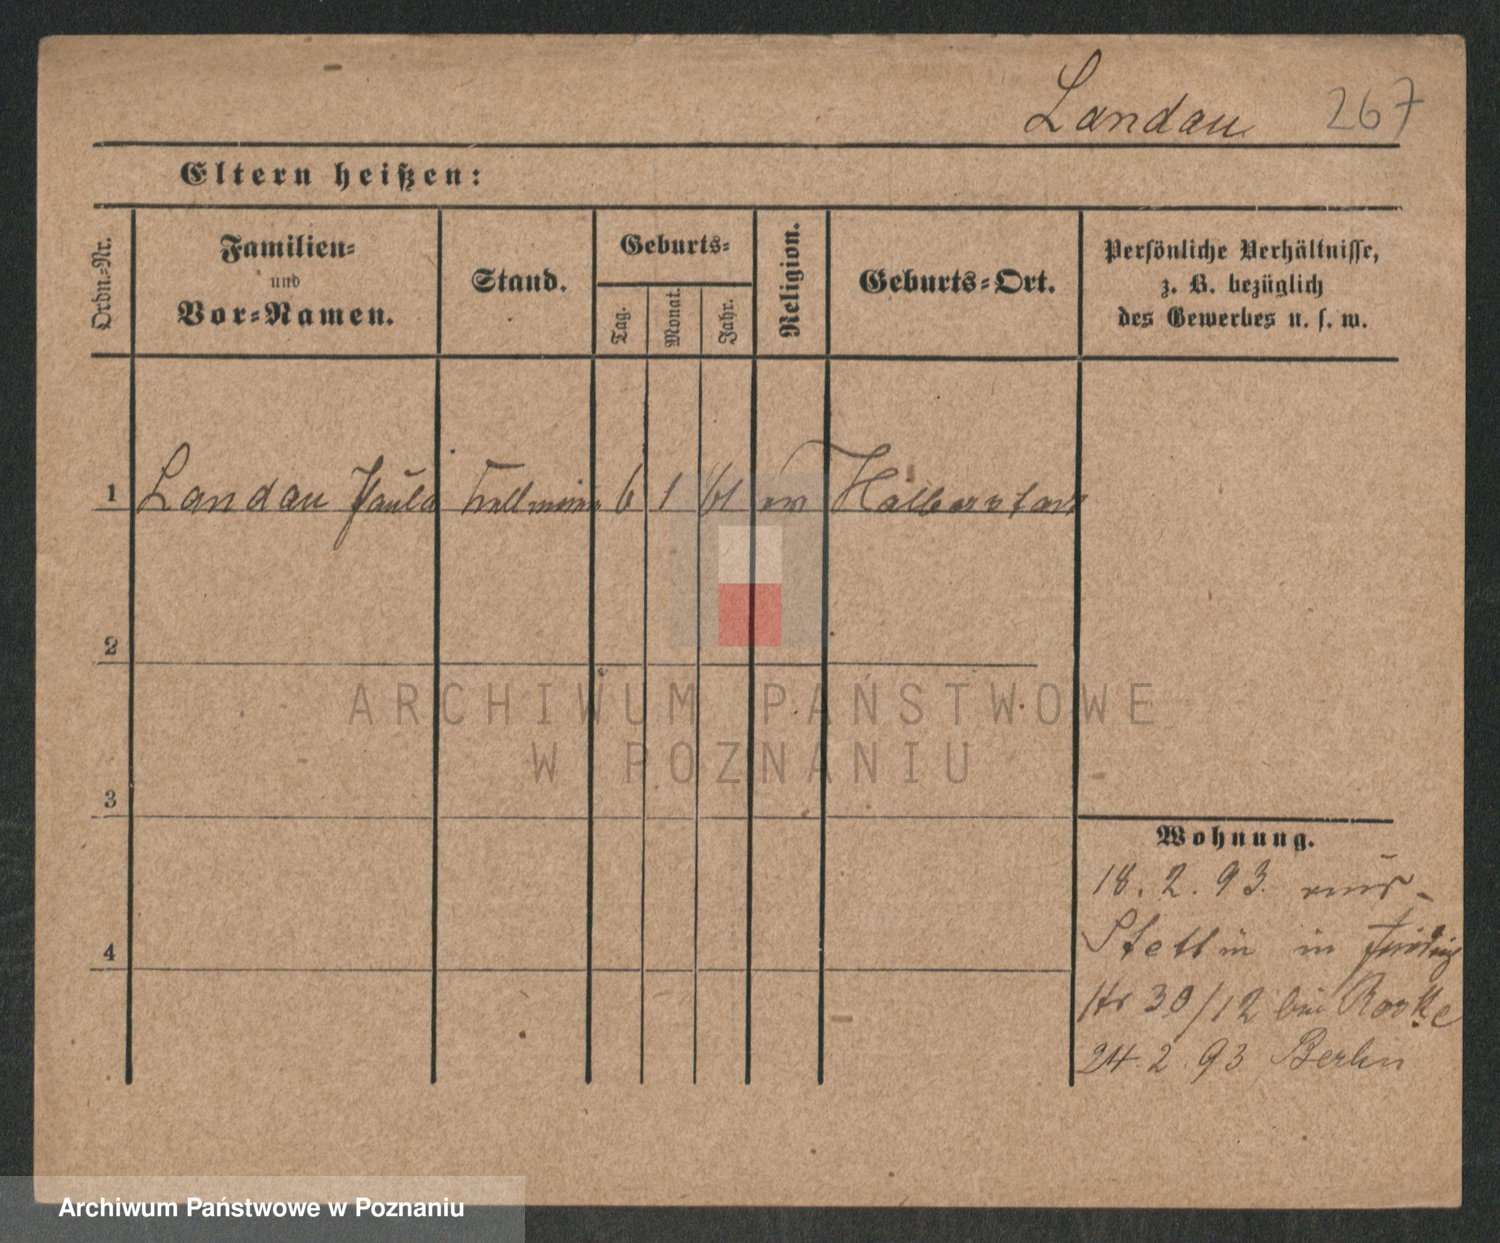 Landau 267
Eltern heißen:
Ordn.-Nr.
Familien-
und
Vor-Namen.
Stand.
Geburts-
Tag.
Monat.
Jahr.
Religion.
Geburts-Ort.
Persönliche Verhältnisse,
z. B. bezüglich
des Gewerbes u. s. w.
1 Landau Paula 6 1 61 ev Halberstadt
2
ARCHIWUM PAŃSTWOWE
W POZNANIU
3
Wohnung.
18. 2. 93. aus
Stettin in
4
Str 30/12 bei
24. 2. 93 Berlin
Archiwum Państwowe w Poznaniu